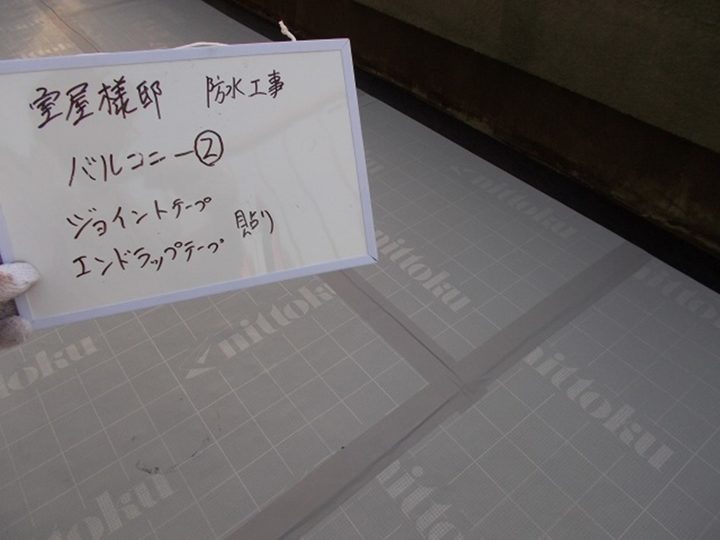 室屋様邸 防水工事
バルコニー②
ジョイントテープ
エンドラップテープ 貼り
nittoku
nittoku
nittoku
nittoku
nittoku
nittoku
nittoku